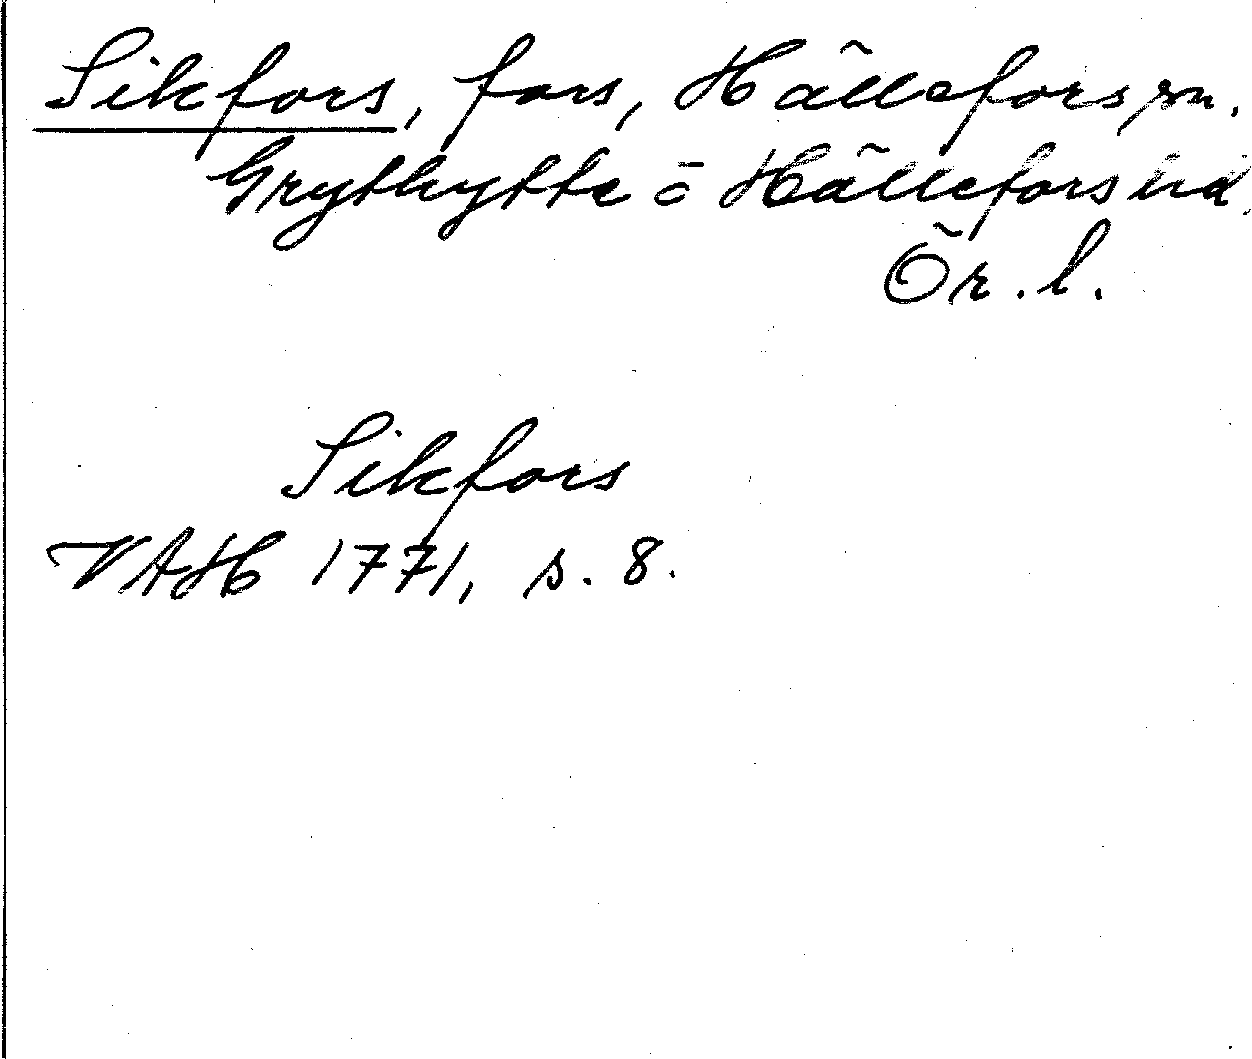 Sikfors, fors, Hällefors sn.
Grythytte o Hällefors hd.
Ör. l.
Sikfors
VAH 1771, s. 8.